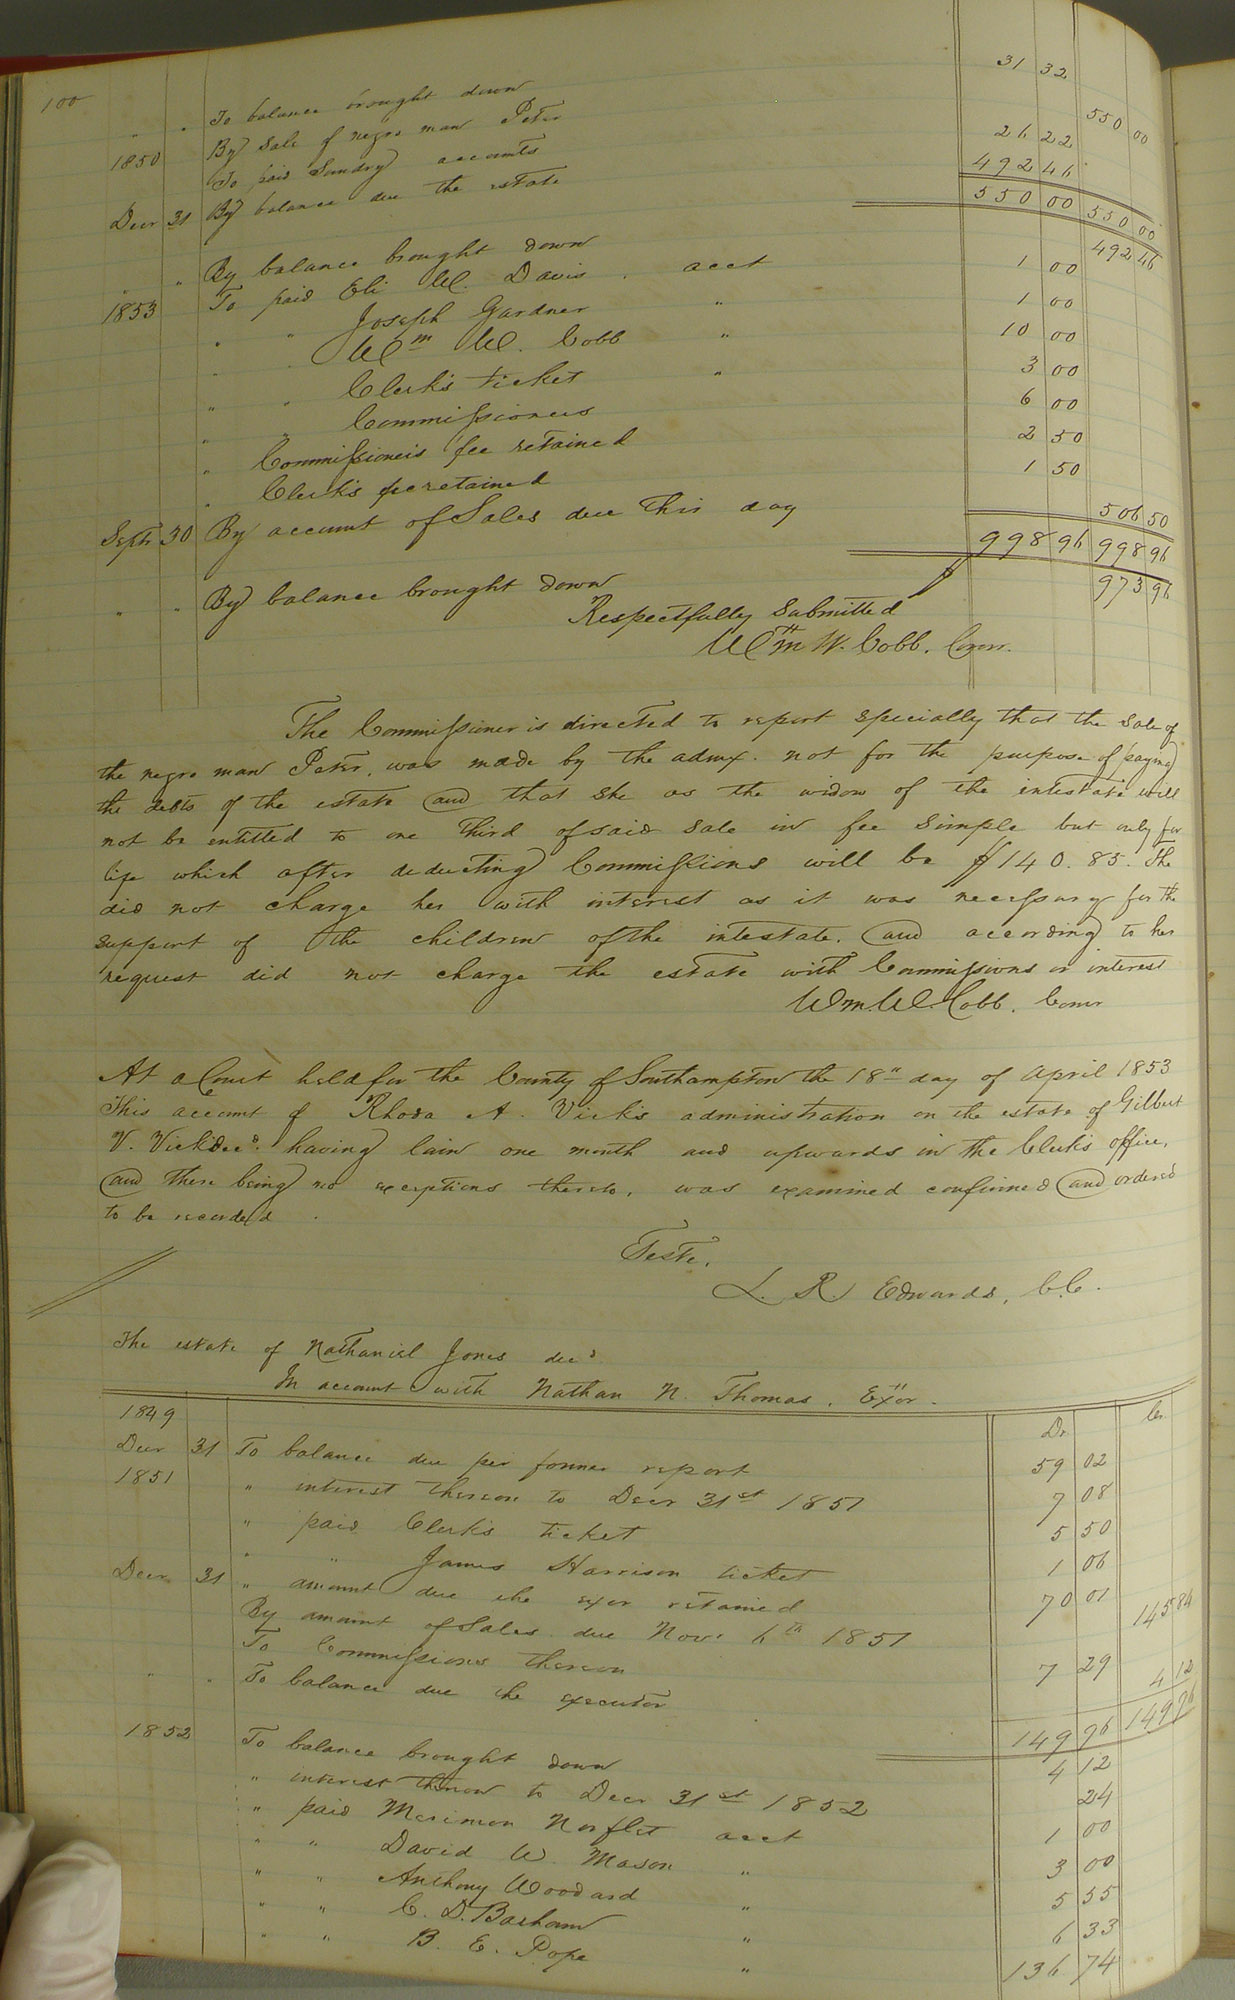 100
" " To balance brought down 31 32
1850 By Sale of negro man Peter 550 00
To paid Sundry accounts 26 22
Decr 31 By balance due the estate 492 46
550 00 550 00
" " By balance brought down 492 46
1853 To paid Eli W. Davis acct 1 00
" " Joseph Gardner " 1 00
" " Wm W. Cobb " 10 00
" " Clerk's ticket " 3 00
" " Commissioners 6 00
" Commissioners fee retained 2 50
" Clerk's fee retained 1 50
Septr 30 By account of Sales due this day 506 50
998 96 998 96
" " By balance brought down 973 96
Respectfully Submitted
Wm W. Cobb. Comr.
The Commissioner is directed to report specially that the sale of
the negro man Peter, was made by the admx. not for the purpose of paying
the debts of the estate and that she as the widow of the intestate will
not be entitled to one third of said sale in fee simple but only for
life which after deducting Commissions will be $140.85. The
did not charge her with interest as it was necessary for the
support of the children of the intestate. and according to her
request did not charge the estate with Commissions or interest
Wm. W. Cobb. Comr
At a Court held for the County of Southampton the 18" day of April 1853
This account of Rhoda A. Vick's administration on the estate of Gilbert
V. Vick decd. having lain one month and upwards in the Clerk's office,
and there being no exceptions thereto, was examined confirmed and ordered
to be recorded.
Teste.
L. R. Edwards, C.C.
The estate of Nathaniel Jones decd
In account with Nathan N. Thomas, Exor.
1849 Dr Cr
Decr 31 To balance due per former report 59 02
1851 " interest thereon to Decr 31st 1851 7 08
" paid Clerk's ticket 5 50
" " James Harrison ticket 1 06
Decr 31 " amount due the exor retained 70 01
By amount of Sales due Novr 6th 1851 145 84
To Commissions thereon 7 29
" " To balance due the executor 4 12
149 96 149 96
1852 To balance brought down 4 12
" interest thereon to Decr 31st 1852 24
" paid Merimon Norflet acct 1 00
" " David W. Mason " 3 00
" " Anthony Woodard " 5 55
" " C. D. Barham " 6 33
" " B. E. Pope " 136 74